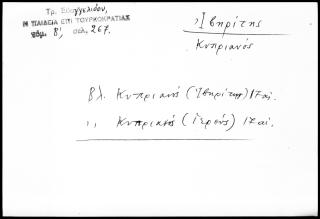 Τρ. Ευαγγελίδου,
Η ΠΑΙΔΕΙΑ ΕΠΙ ΤΟΥΡΚΟΚΡΑΤΙΑΣ
τόμ. Β', σελ. 267.
Ἰβηρίτης
Κυπριανός
Βλ. Κυπριανός (Ἰβηρίτης) 17 αἰ.
,, Κυπριανός (ἱερεύς) 17 αἰ.